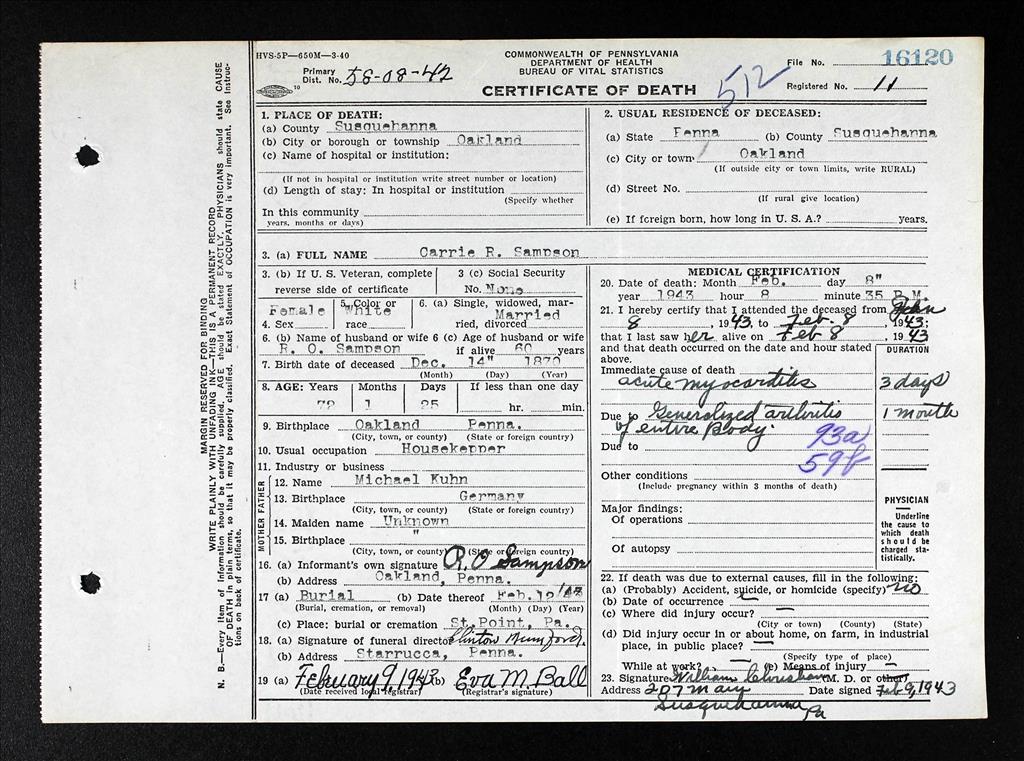 HVS-5P—650M—3-40
COMMONWEALTH OF PENNSYLVANIA
DEPARTMENT OF HEALTH
BUREAU OF VITAL STATISTICS
CERTIFICATE OF DEATH
Primary
Dist. No. 58-08-42
512
File No. 16120
Registered No. 11
MARGIN RESERVED FOR BINDING
WRITE PLAINLY WITH UNFADING INK—THIS IS A PERMANENT RECORD
N. B.—Every item of information should be carefully supplied. AGE should be stated EXACTLY. PHYSICIANS should state CAUSE
OF DEATH in plain terms, so that it may be properly classified. Exact Statement of OCCUPATION is very important. See Instruc-
tions on back of certificate.
1. PLACE OF DEATH:
(a) County Susquehanna
(b) City or borough or township Oakland
(c) Name of hospital or institution:
(If not in hospital or institution write street number or location)
(d) Length of stay: In hospital or institution
(Specify whether
In this community
years, months or days)
2. USUAL RESIDENCE OF DECEASED:
(a) State Penna (b) County Susquehanna
(c) City or town Oakland
(If outside city or town limits, write RURAL)
(d) Street No.
(If rural give location)
(e) If foreign born, how long in U. S. A.? years.
3. (a) FULL NAME Carrie R. Sampson
3. (b) If U. S. Veteran, complete
reverse side of certificate
3 (c) Social Security
No. None
Female White
4. Sex 5. Color or race
6. (a) Single, widowed, mar-
ried, divorced Married
6. (b) Name of husband or wife 6 (c) Age of husband or wife
R. O. Sampson if alive 60 years
7. Birth date of deceased Dec. 14" 1870
(Month) (Day) (Year)
8. AGE: Years Months Days If less than one day
72 1 25 hr. min.
9. Birthplace Oakland Penna.
(City, town, or county) (State or foreign country)
10. Usual occupation Housekepper
11. Industry or business
FATHER
12. Name Michael Kuhn
13. Birthplace Germany
(City, town, or county) (State or foreign country)
MOTHER
14. Maiden name Unknown
15. Birthplace "
(City, town, or county) (State or foreign country)
16. (a) Informant's own signature R. O Sampson
(b) Address Oakland, Penna.
17 (a) Burial (b) Date thereof Feb. 12/43
(Burial, cremation, or removal) (Month) (Day) (Year)
(c) Place: burial or cremation St. Point, Pa.
18. (a) Signature of funeral director Clinton Mumford.
(b) Address Starrucca, Penna.
19 (a) February 9, 1943 (b) Eva M. Ball
(Date received local registrar) (Registrar's signature)
MEDICAL CERTIFICATION
20. Date of death: Month Feb. day 8"
year 1943 hour 8 minute 35 P.M.
21. I hereby certify that I attended the deceased from Jan
8, 1943, to Feb. 8, 1943;
that I last saw her alive on Feb 8, 1943
and that death occurred on the date and hour stated
above.
DURATION
Immediate cause of death
acute myocarditis 3 days
Due to Generalized arthritis 1 month
of entire Body.
Due to
93a
59b
Other conditions
(Include pregnancy within 3 months of death)
Major findings:
Of operations
Of autopsy
PHYSICIAN
Underline
the cause to
which death
should be
charged sta-
tistically.
22. If death was due to external causes, fill in the following:
(a) (Probably) Accident, suicide, or homicide (specify) no
(b) Date of occurrence —
(c) Where did injury occur? —
(City or town) (County) (State)
(d) Did injury occur in or about home, on farm, in industrial
place, in public place? —
(Specify type of place)
While at work? — (e) Means of injury —
23. Signature William (M. D. or other)
Address 207 Main Date signed Feb 9, 1943
Susquehanna
Pa